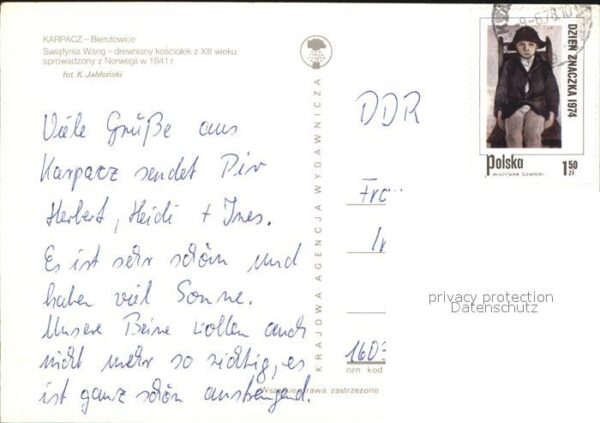 KARPACZ – Bierutowice
Świątynia Wang – drewniany kościółek z XIII wieku,
sprowadzony z Norwegii w 1841 r.
fot. K. Jabłoński
Viele Grüße aus
Karpacz sendet Dir
Herbert, Heidi + Ines.
Es ist sehr schön und
haben viel Sonne.
Unsere Beine wollen auch
nicht mehr so richtig, es
ist ganz schön anstrengend.
KRAJOWA AGENCJA WYDAWNICZA
DDR
Fra
160
ozn kod
Wszelkie prawa zastrzeżone
DZIEŃ ZNACZKA 1974
Polska
1,50
zł
privacy protection
Datenschutz